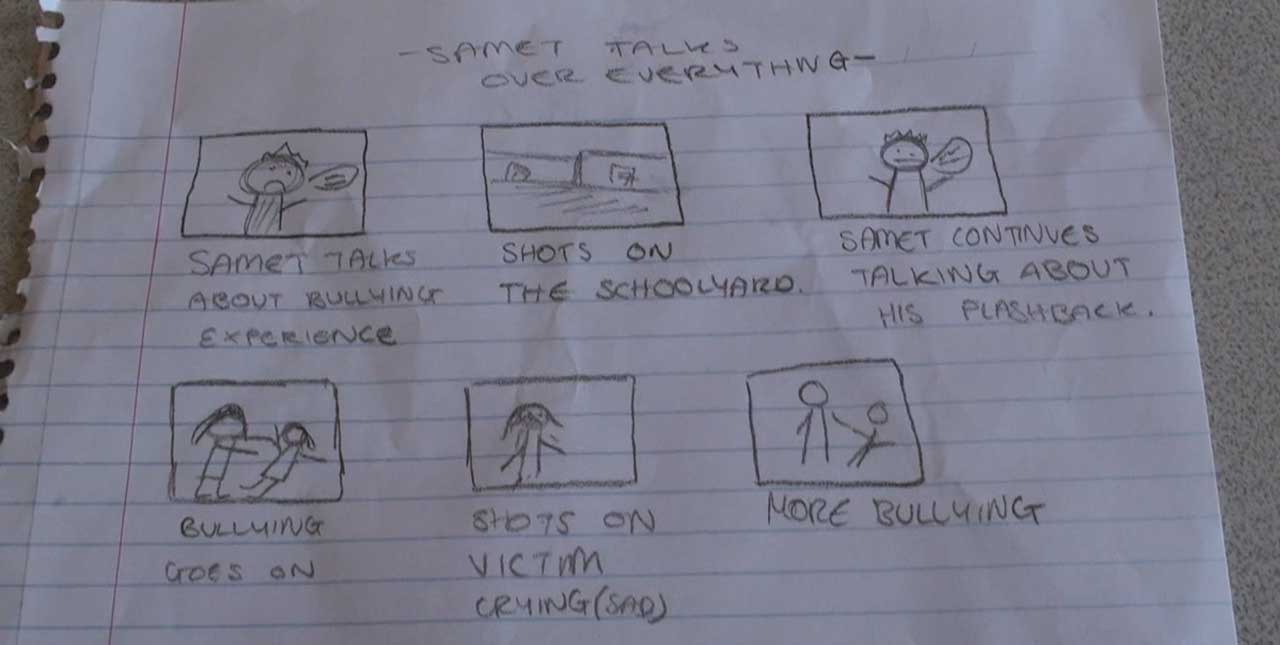 -SAMET TALKS
OVER EVERYTHING-
SAMET TALKS
ABOUT BULLYING
EXPERIENCE
SHOTS ON
THE SCHOOLYARD.
SAMET CONTINUES
TALKING ABOUT
HIS FLASHBACK.
BULLYING
GOES ON
SHOTS ON
VICTIM
CRYING(SAD)
MORE BULLYING